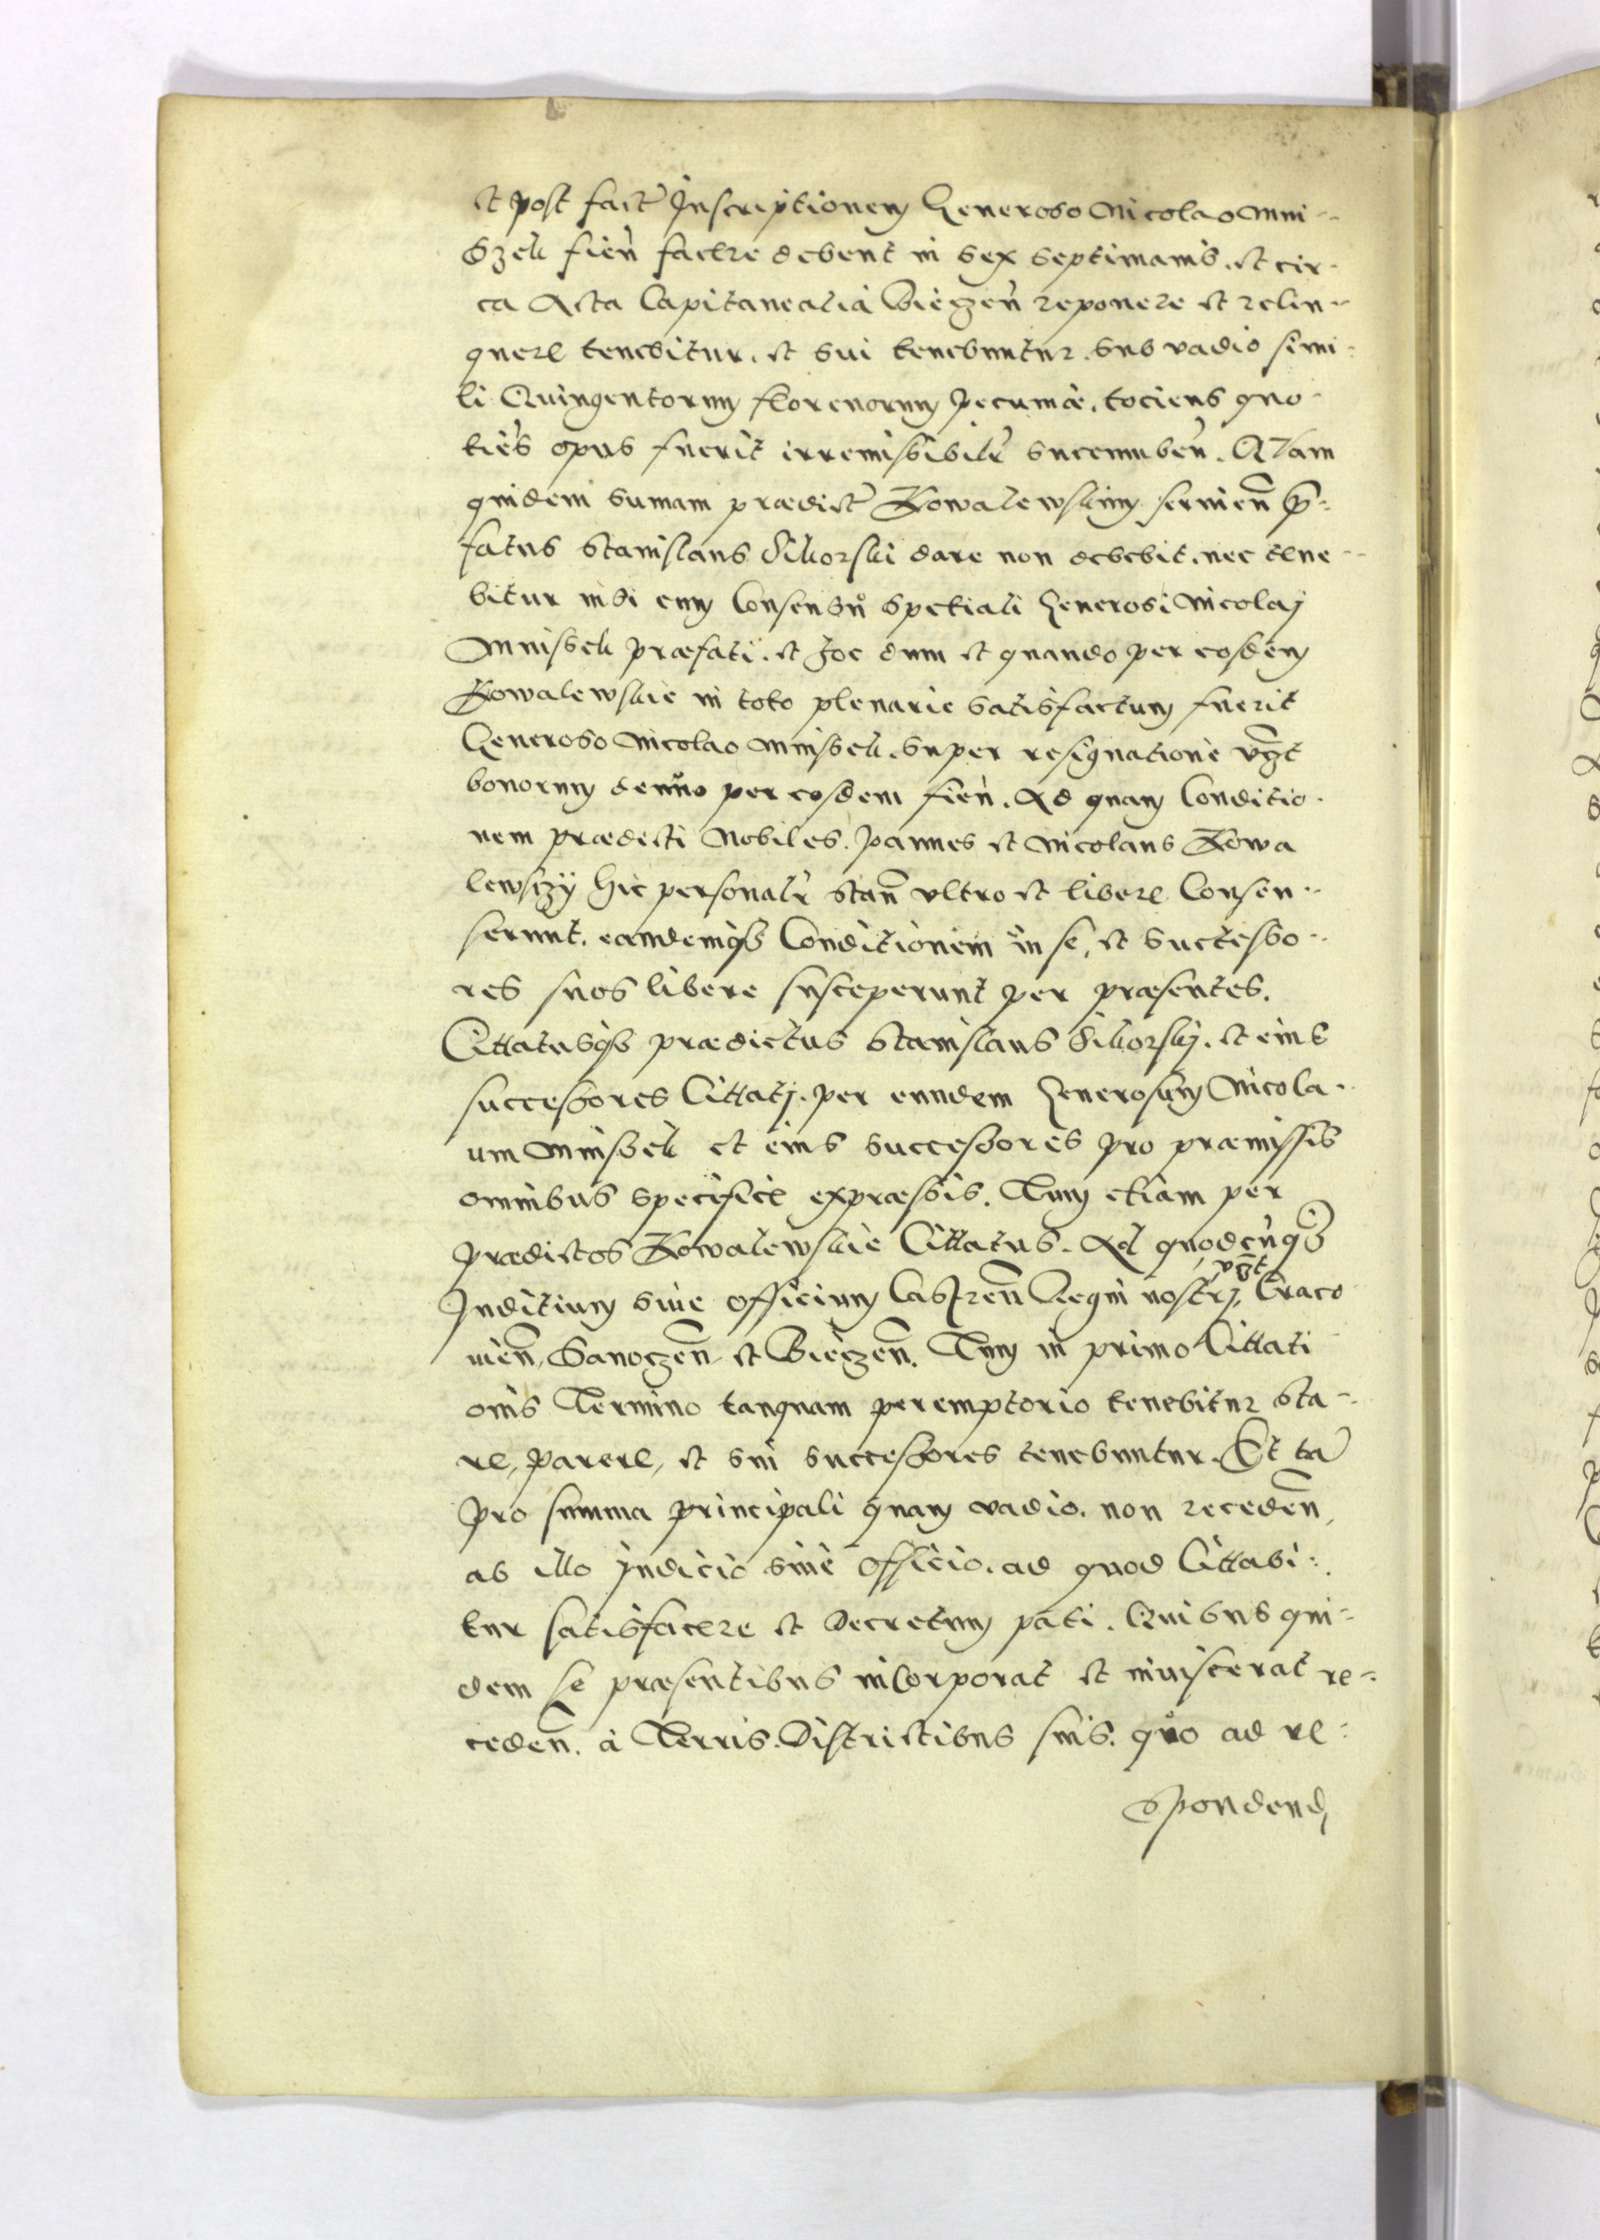 et post fact Inscriptionem Generoso Nicolao Mni-
szek fien facere debent in sex septimanis. et cir-
ca Acta Capitanealia Bieczen reponere et relin-
quere tenebitur. et sui tenebuntur. sub vadio simi-
li Quingentorum florenorum pecuniæ. tociens quo-
ties opus fuerit irremissibilr succumben. Quam
quidem sumam prædict Kowalewskim servien p-
fatus Stanislaus Sikorski dare non debebit. nec tene-
bitur nisi cum Consensu spetiali Generosi Nicolaj
Mnisek præfati. et hoc dum et quando per eosdem
Kowalewskie in toto plenarie satisfactum fuerit
Generoso Nicolao Mnisek. super resignatione vgt
bonorum denuo per eosdem fien. Ad quam Conditio-
nem prædicti Nobiles. Joannes et Nicolaus Kowa
lewsczy hic personalr stan ultro et libere Consen-
serunt. eandemqz Conditionem in se, et successo-
res suos libere susceperunt per præsentes.
Cittatusqz prædictus Stanislaus Sikorskj. et eius
successores Cittatj. per eundem Generosum Nicola-
um Mnisek et eius successores pro præmissis
omnibus specifice expræssis. Tum etiam per
prædictos Kowalewskie Cittatus. Ad quodcunqz
Inditium sive officium Castren Regni nostrj, vgt Craco
vien, Sanoczen et Bieczen. Tum in primo Cittati
onis Termino tanquam peremptorio tenebitur sta-
re, parere, et sui successores tenebuntur. Et ta
pro summa principali quam vadio. non receden,
ab illo Judicio sive officio. ad quod Cittabi-
tur satisfacere et Decretum pati. Quibus qui-
dem se præsentibus incorporat et inviscerat re-
ceden. a Terris. Districtibus suis. quo ad re-
spondend